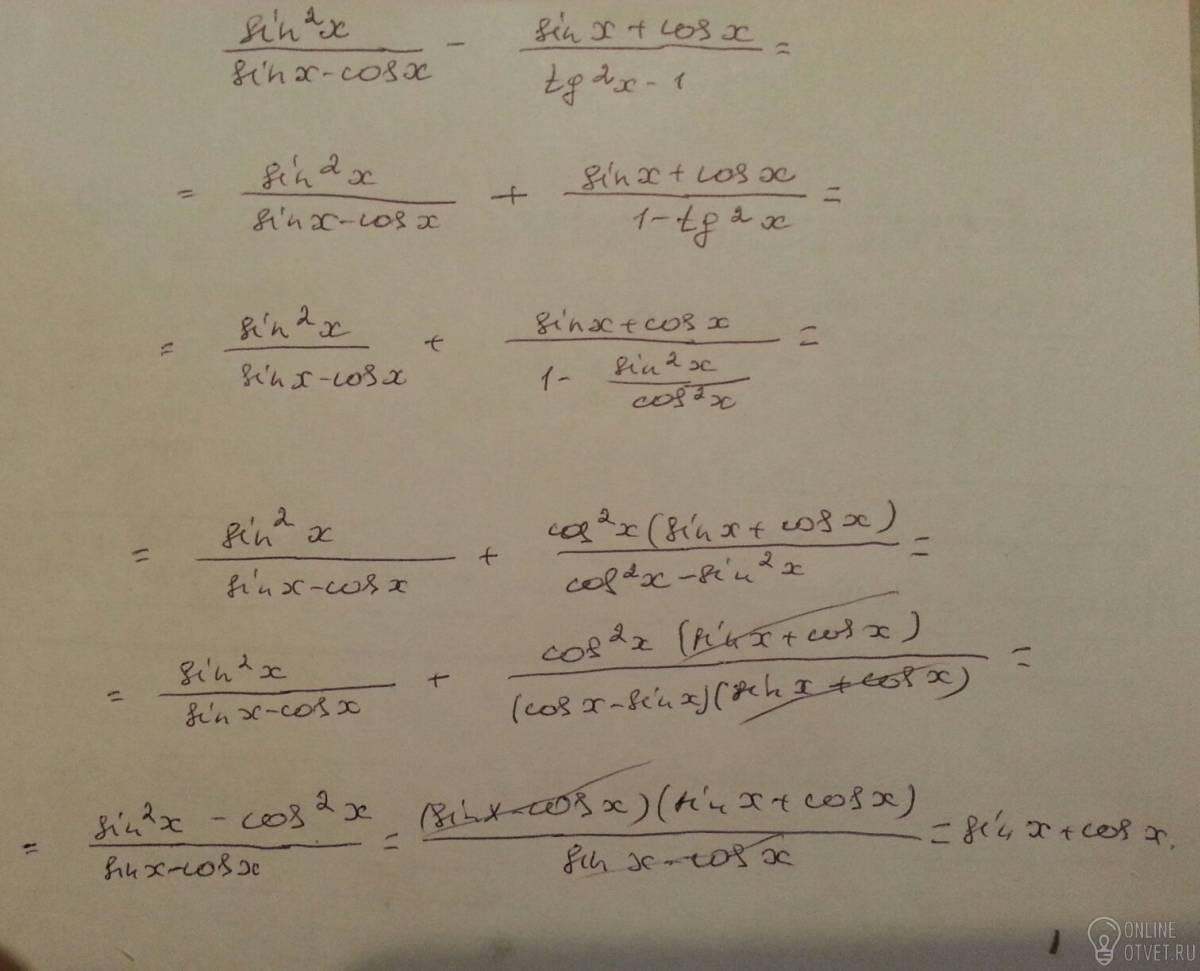 sin²x / (sinx-cosx) - (sin x + cos x) / (tg²x - 1) =
= sin²x / (sinx-cosx) + (sinx + cos x) / (1-tg²x) =
= sin²x / (sinx-cosx) + (sinx+cos x) / (1- sin²x / cos²x) =
= sin²x / (sinx-cosx) + cos²x (sinx + cos x) / (cos²x - sin²x) =
= sin²x / (sinx-cosx) + cos²x (sin x + cos x) / ((cosx-sinx)(sin x + cosx)) =
= (sin²x - cos²x) / (sinx-cosx) = (sinx-cosx)(sinx+cosx) / (sin x-cosx) = sin x + cos x.
ONLINE
OTVET.RU